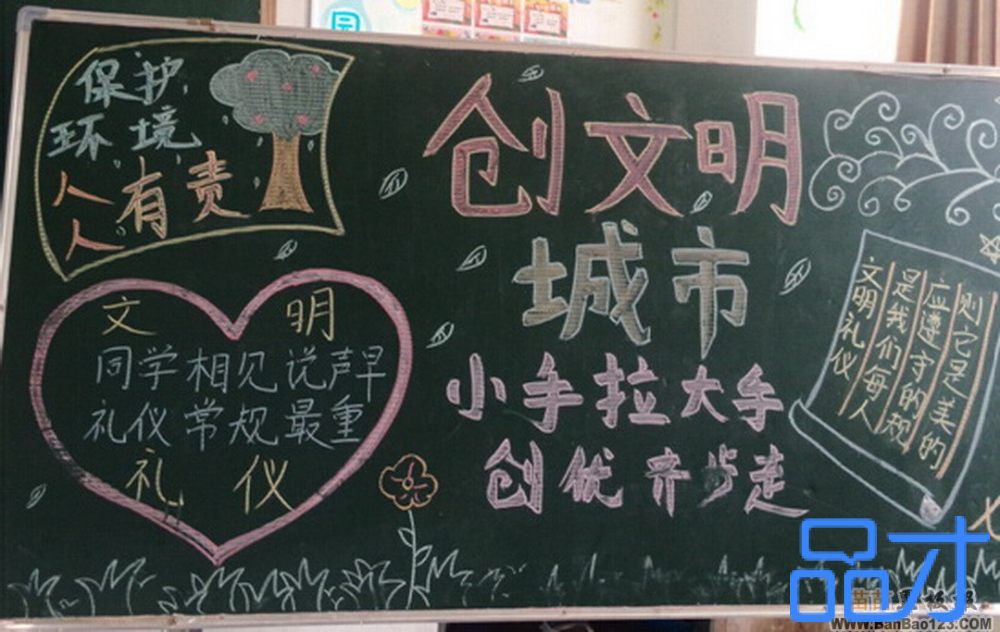 保护
环境
人人有责
创文明
城市
小手拉大手
创优齐步走
文明
同学相见说声早
礼仪常规最重
礼仪
文明礼仪
是我们每人
应遵守的规
则它是美的
品才
WWW.BanBao123.COM